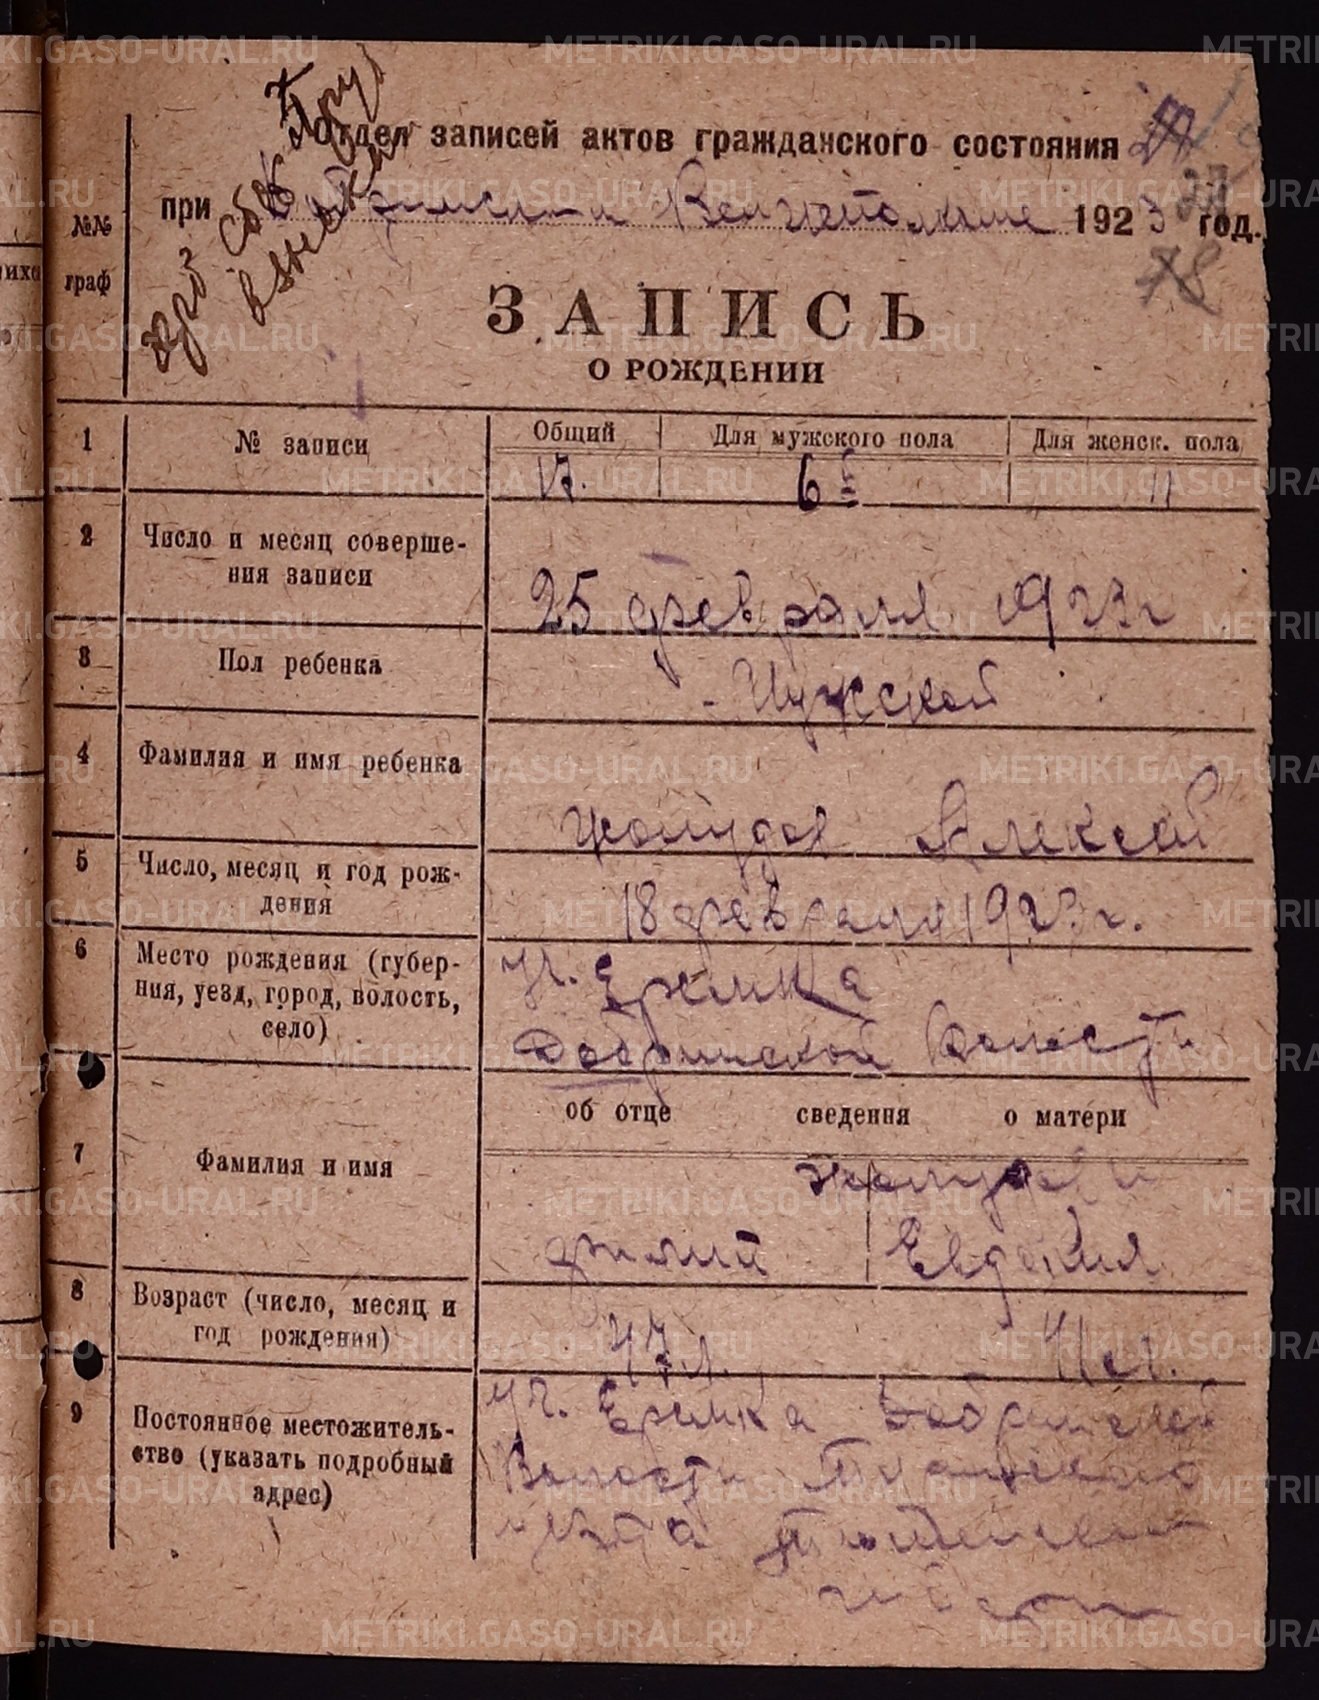 Отдел записей актов гражданского состояния
при Волисполкоме 1923 год.
№№ граф
ЗАПИСЬ
О РОЖДЕНИИ
1 № записи Общий Для мужского пола Для женск. пола
17. 6 11
2 Число и месяц соверше-
ния записи
25 февраля 1923 г
3 Пол ребенка Мужской
4 Фамилия и имя ребенка
Алексей
5 Число, месяц и год рож-
дения
18 февраля 1923 г.
6 Место рождения (губер-
ния, уезд, город, волость,
село)
уч. Ермика
Добринской Волости
об отце сведения о матери
7 Фамилия и имя
Евдокия
8 Возраст (число, месяц и
год рождения)
47 л. 41 л.
9 Постоянное местожитель-
ство (указать подробный
адрес)
уч. Ермика Добринской
Волости Туринского
уезда Тюменской
METRIKI.GASO-URAL.RU